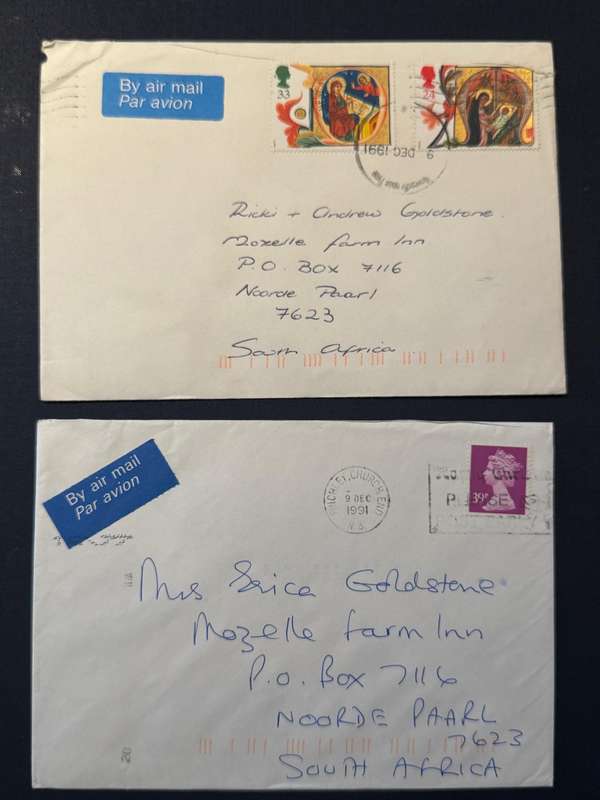 By air mail
Par avion
33
24
9 DEC 1991
Ricki + Andrew Goldstone
Mozelle Farm Inn
P.O. BOX 7116
Noorde Paarl
7623
South Africa
By air mail
Par avion
FINCHLEY, CHURCH END
9 DEC
1991
N.3.
39P
Mrs Erica Goldstone
Mozelle Farm Inn
P.O. Box 7116
NOORDE PAARL
7623
SOUTH AFRICA